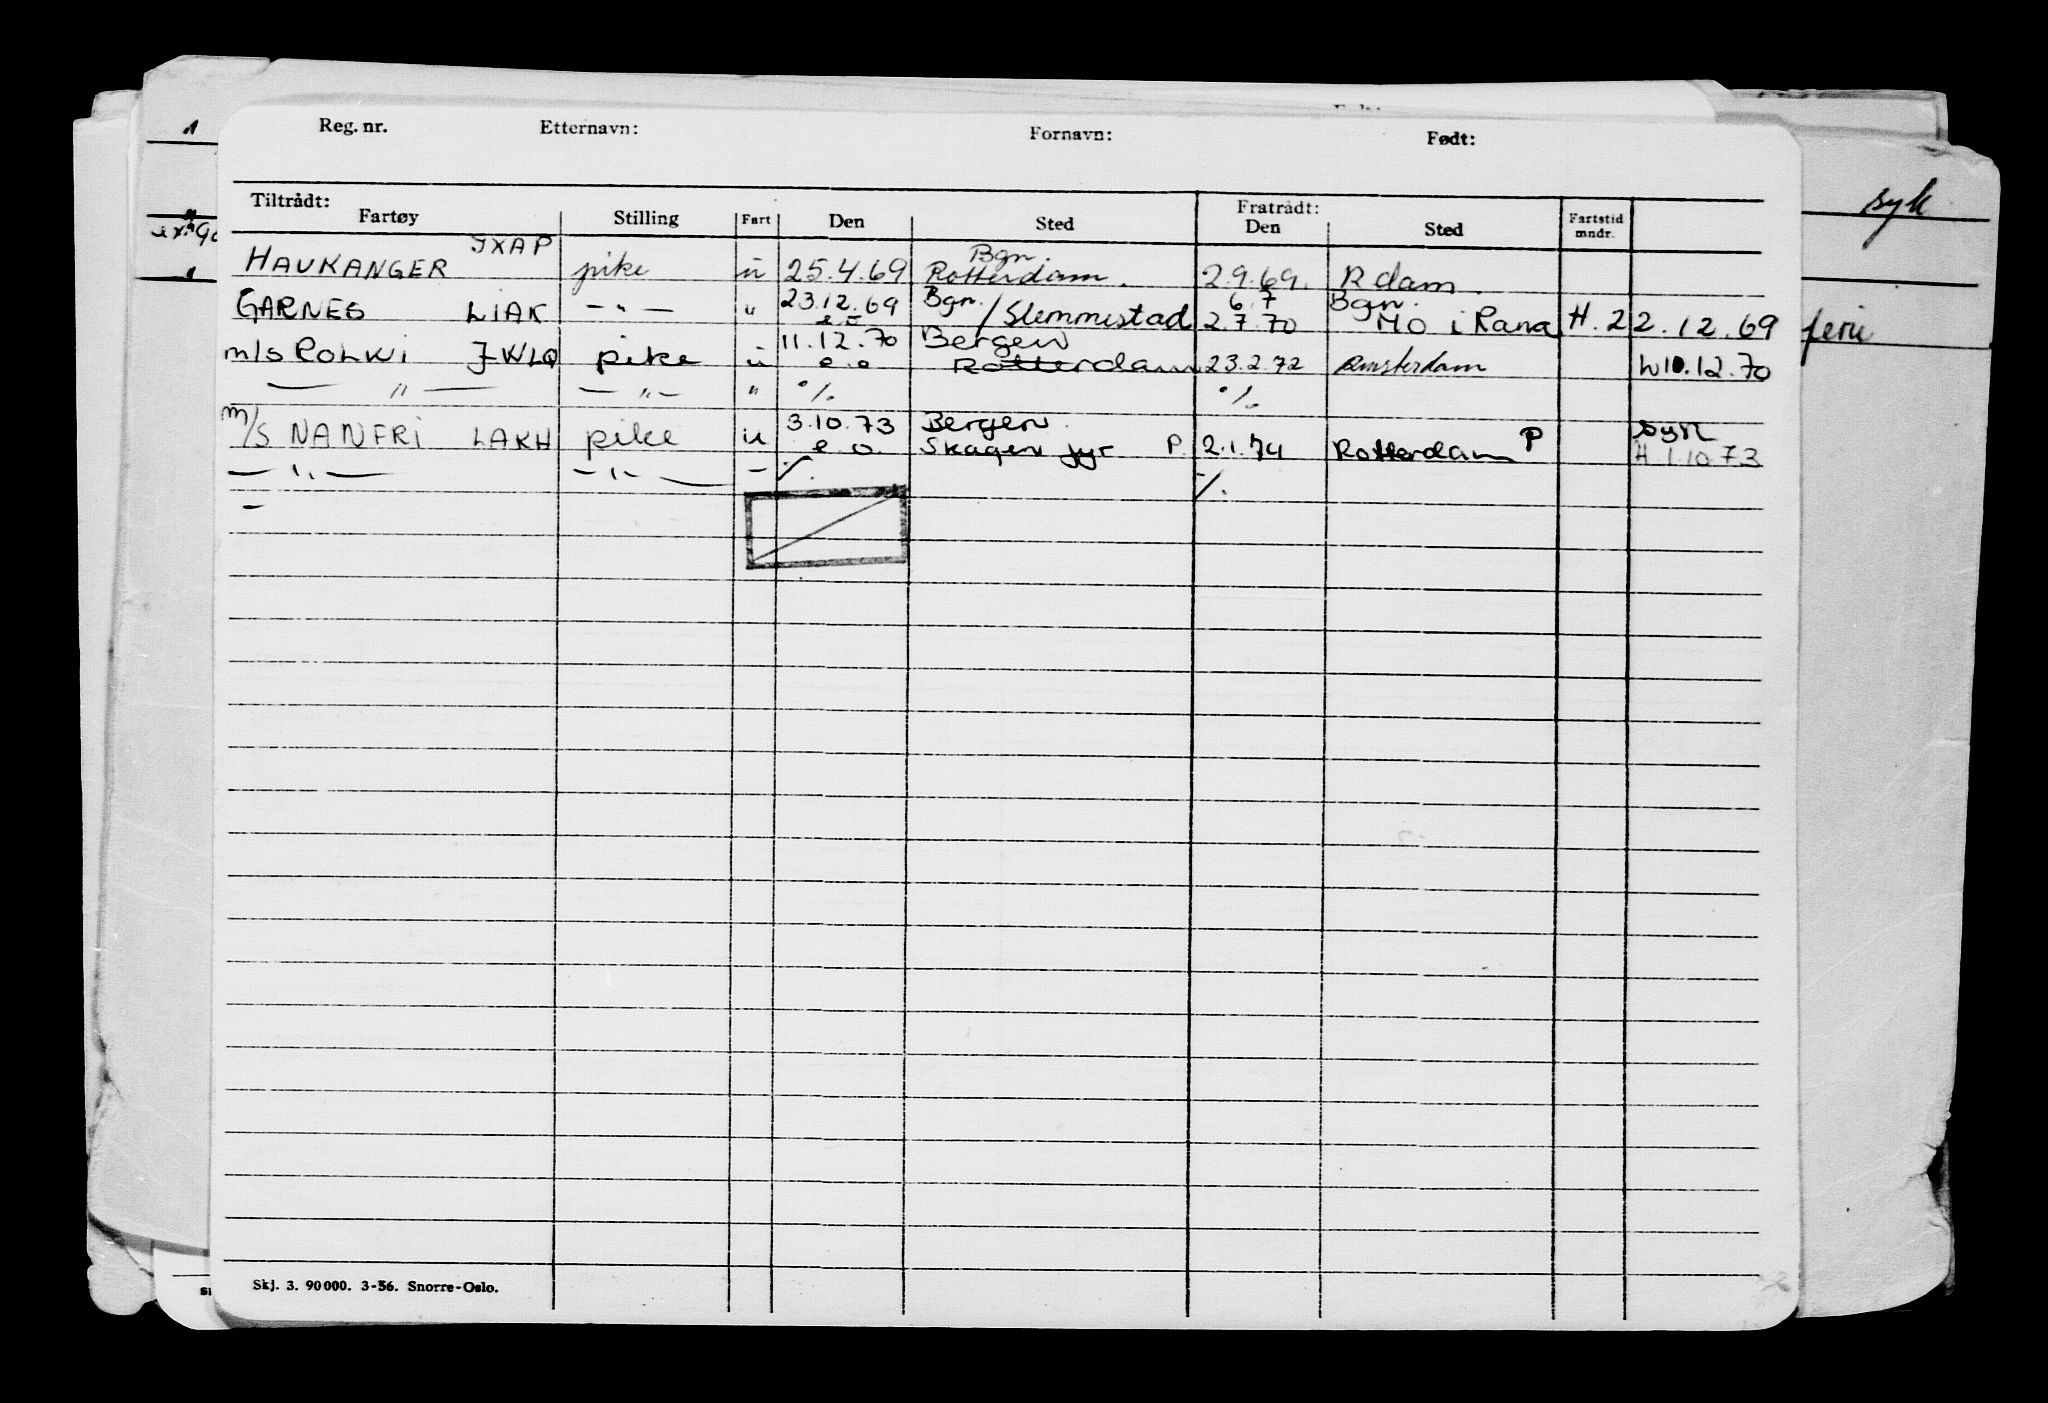 Reg. nr. Etternavn: Fornavn: Født:
Tiltrådt: Fratrådt:
Fartøy Stilling Fart Den Sted Den Sted Fartstid mndr.
syk
JXAP Bgn.
HAUKANGER pike u 25.4.69 Rotterdam. 2.9.69. R dam.
23.12.69 Bgn. 6.7 Bgn.
GARNES LIAK - " - " /Slemmestad 2.7.70 MO i Rana H. 22.12.69 ferie
11.12.70 Bergen
m/s ROLWI JWLQ pike u e.o Rotterdam 23.2.72 Amsterdam h 10.12.70
— " — — " — " ./. ./.
3.10.73 Bergen. syk
m/s NANFRI LAKH pike u e.o. Skagen jyr P. 2.1.74 Rotterdam P H 1.10.73
— " — — " — - ./. ./.
-
Skj. 3. 90 000. 3-56. Snorre-Oslo.